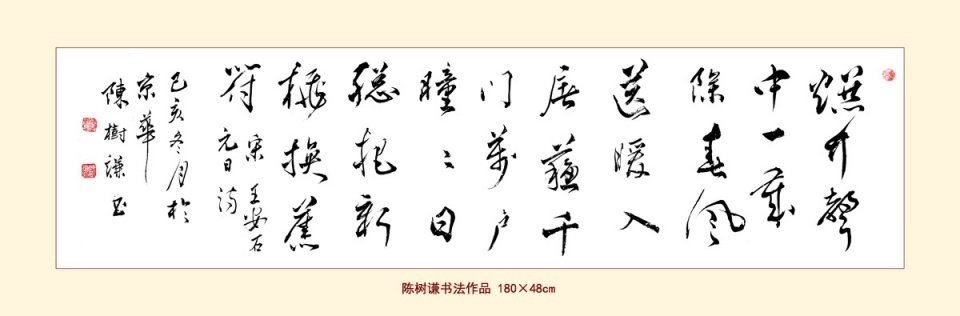 爆竹聲
中一歲
除春風
送暖入
屠蘇千
门萬户
曈〻日
總把新
桃換舊
符
宋 王安石
元日诗
己亥冬月於
京華
陳樹謙书
陈树谦书法作品 180×48cm